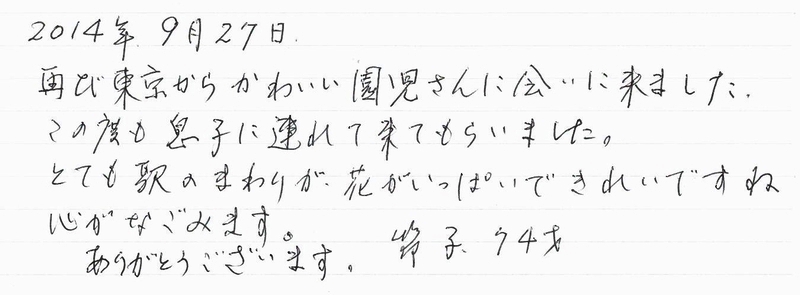 2014年 9月27日.
再び東京からかわいい園児さんに会いに来ました.
この度も息子に連れて来てもらいました。
とても駅のまわりが、花がいっぱいできれいですね
心がなごみます。
ありがとうございます。 鈴子 74才